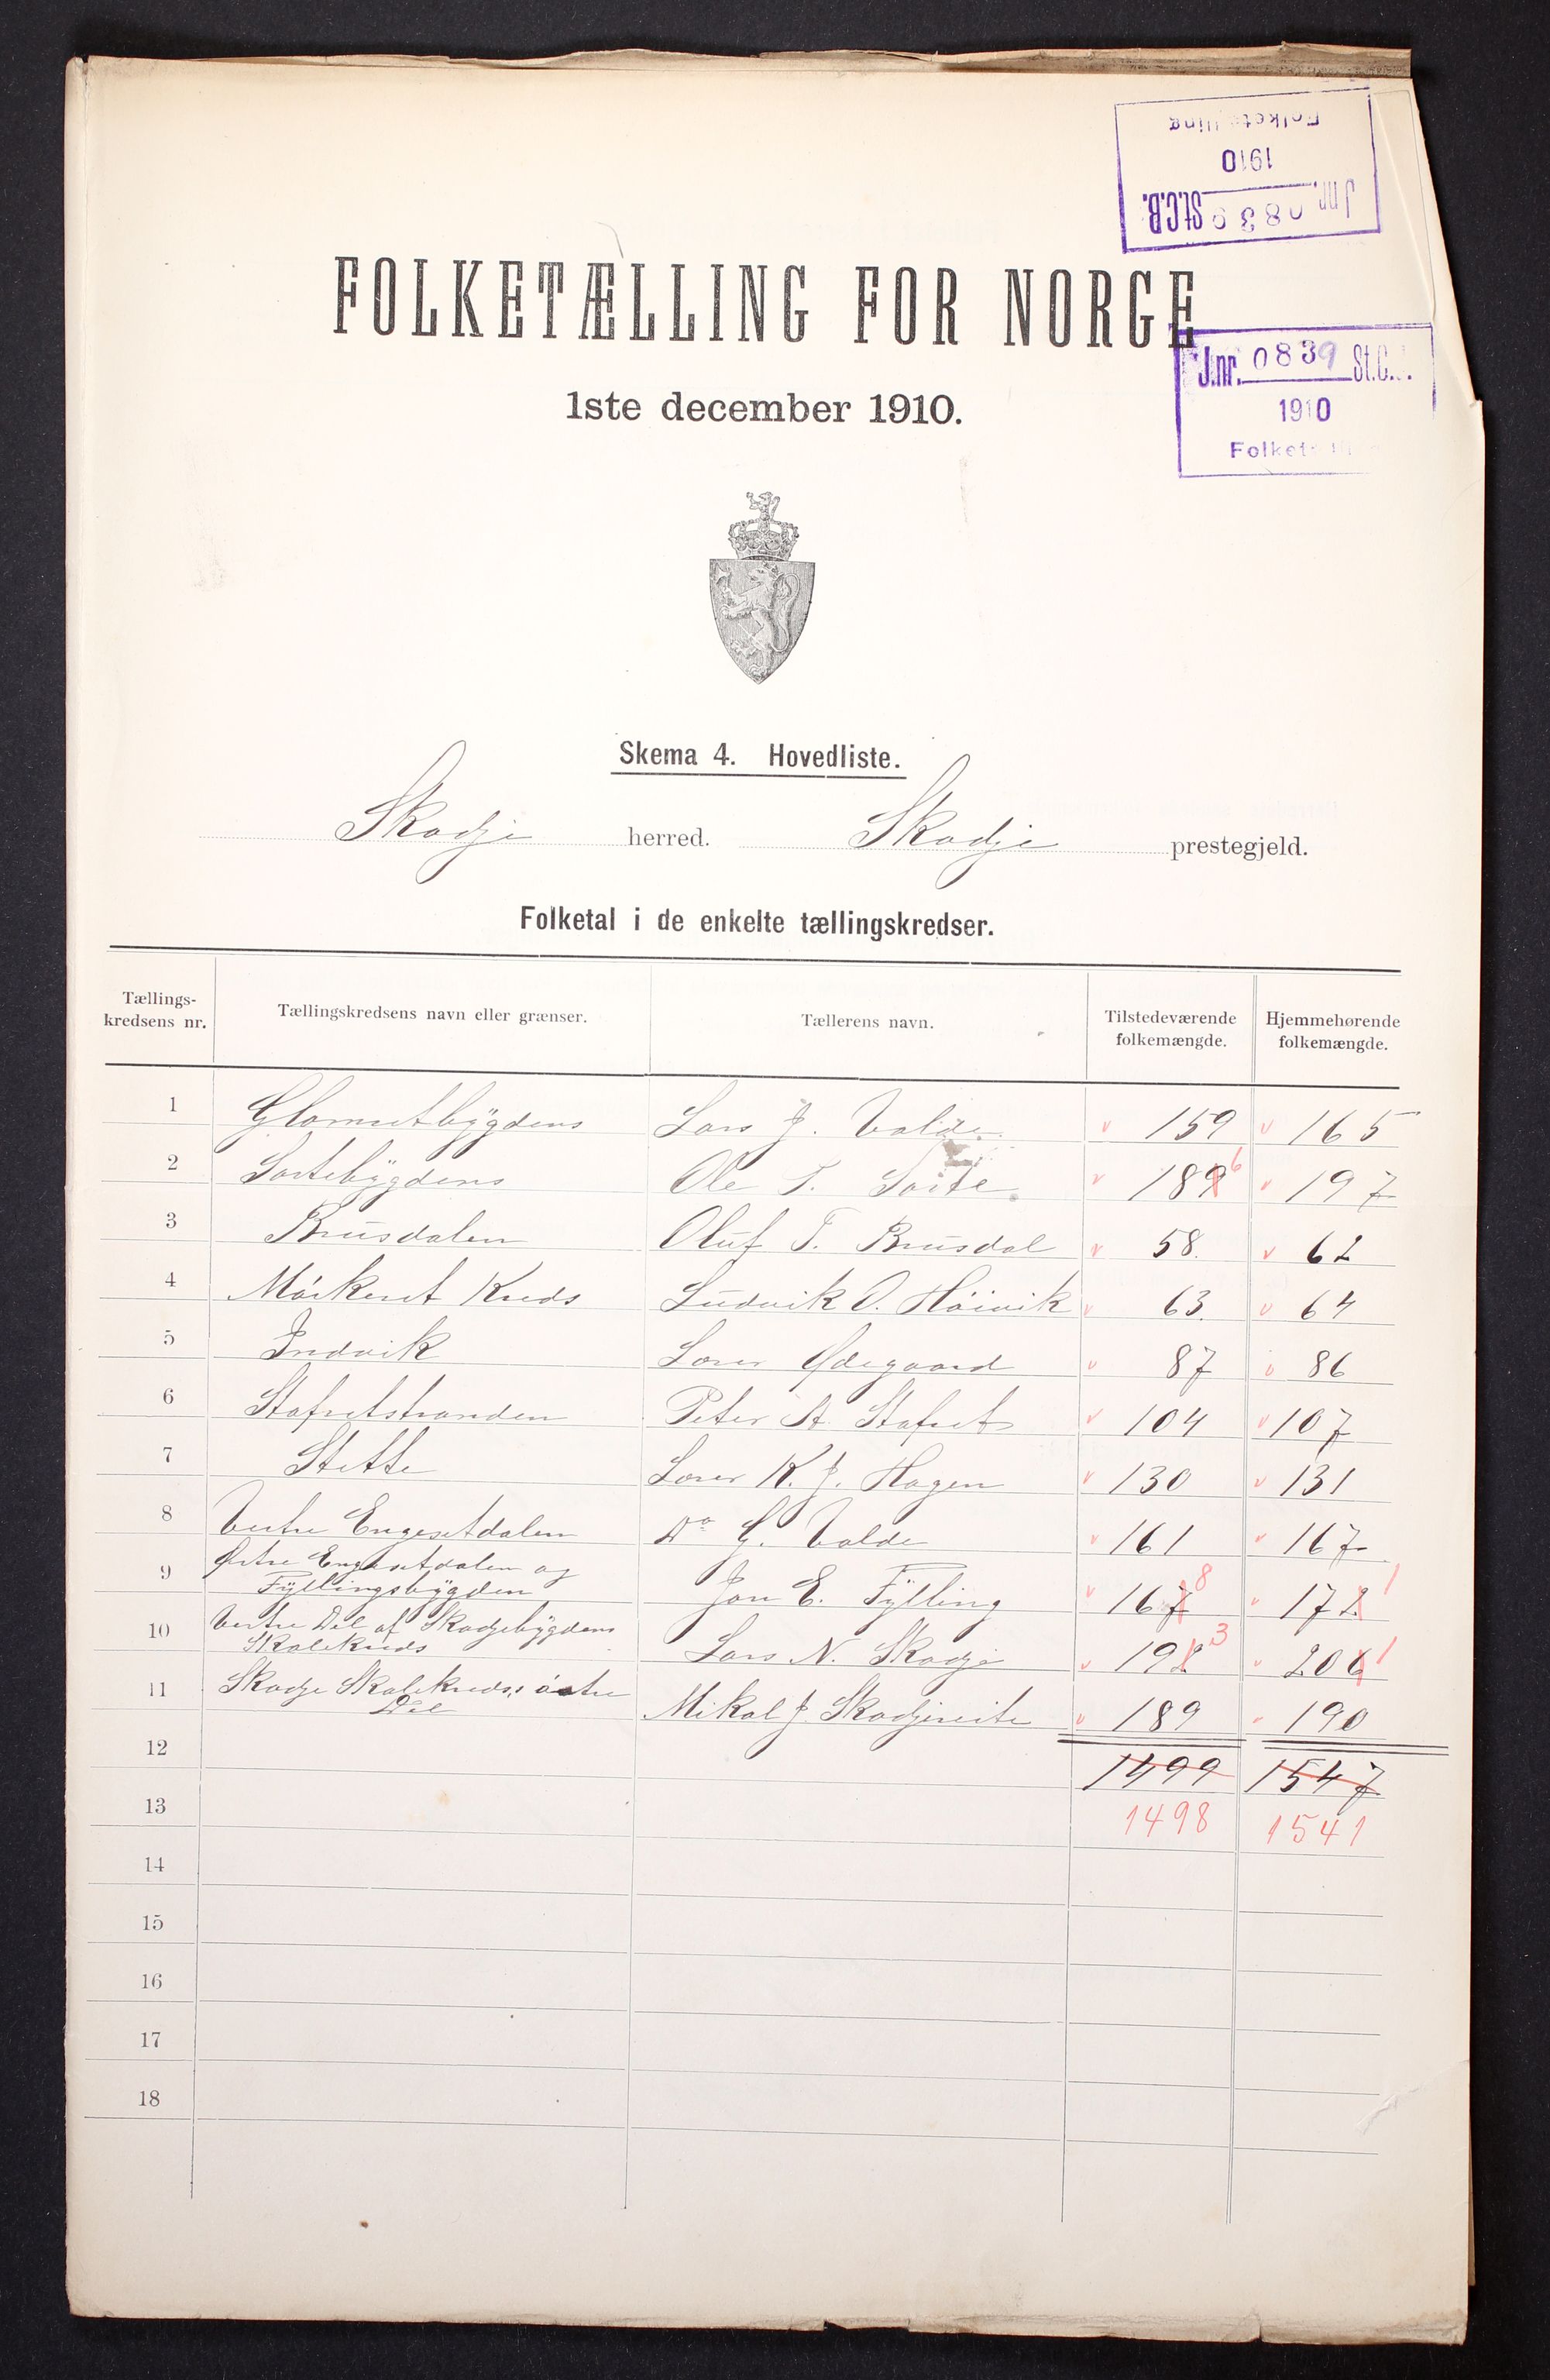 Folketelling
1910
Jnr. 0839 St.C.B.
FOLKETÆLLING FOR NORGE
J.nr. 0839 St.C.
1910
1ste december 1910.
Skema 4. Hovedliste.
Skodje herred. Skodje prestegjeld.
Folketal i de enkelte tællingskredser.
Tællings-
kredsens nr.
Tællingskredsens navn eller grænser.
Tællerens navn.
Tilstedeværende
folkemængde.
Hjemmehørende
folkemængde.
1 Glomsetbygdens Lars J. Valde v 159 v 165
2 Sortebygdens Ole T. Sorte v 189 6 v 197
3 Brusdalen Oluf T. Brusdal v 58. v 62
4 Mórkeset Kreds Ludvik O. Höivik v 63. v 64
5 Indvik Lærer Ødegaard v 87 v 86
6 Stafsetstranden Peter A. Stafset v 104 v 107
7 Stette Lærer K. J. Hagen v 130 v 131
8 Vestre Engesetdalen Do G. Valde v 161 v 167
9 Østre Engesetdalen og
Fyllingsbygden Jon E. Fylling v 167 8 v 172 1
10 Vestre Del af Skodjebygdens
Skolekreds Lars N. Skodje v 192 3 v 206 1
11 Skodje Skolekreds, östre
Del Mikal J. Skodjereite v 189 v 190
12 1499 1547
13 1498 1541
14
15
16
17
18